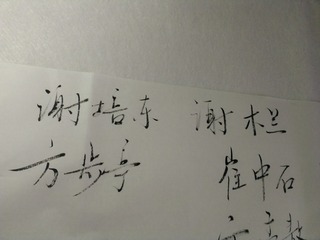 谢培东 谢木兰
方步亭 崔中石